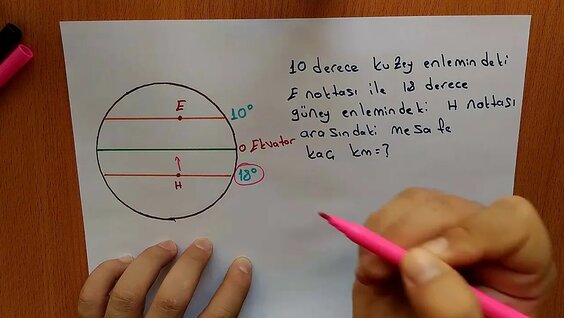 10 derece kuzey enlemindeki
E noktası ile 18 derece
güney enlemindeki H noktası
arasındaki mesafe
kaç km=?
E
10°
0 Ekvator
18°
H